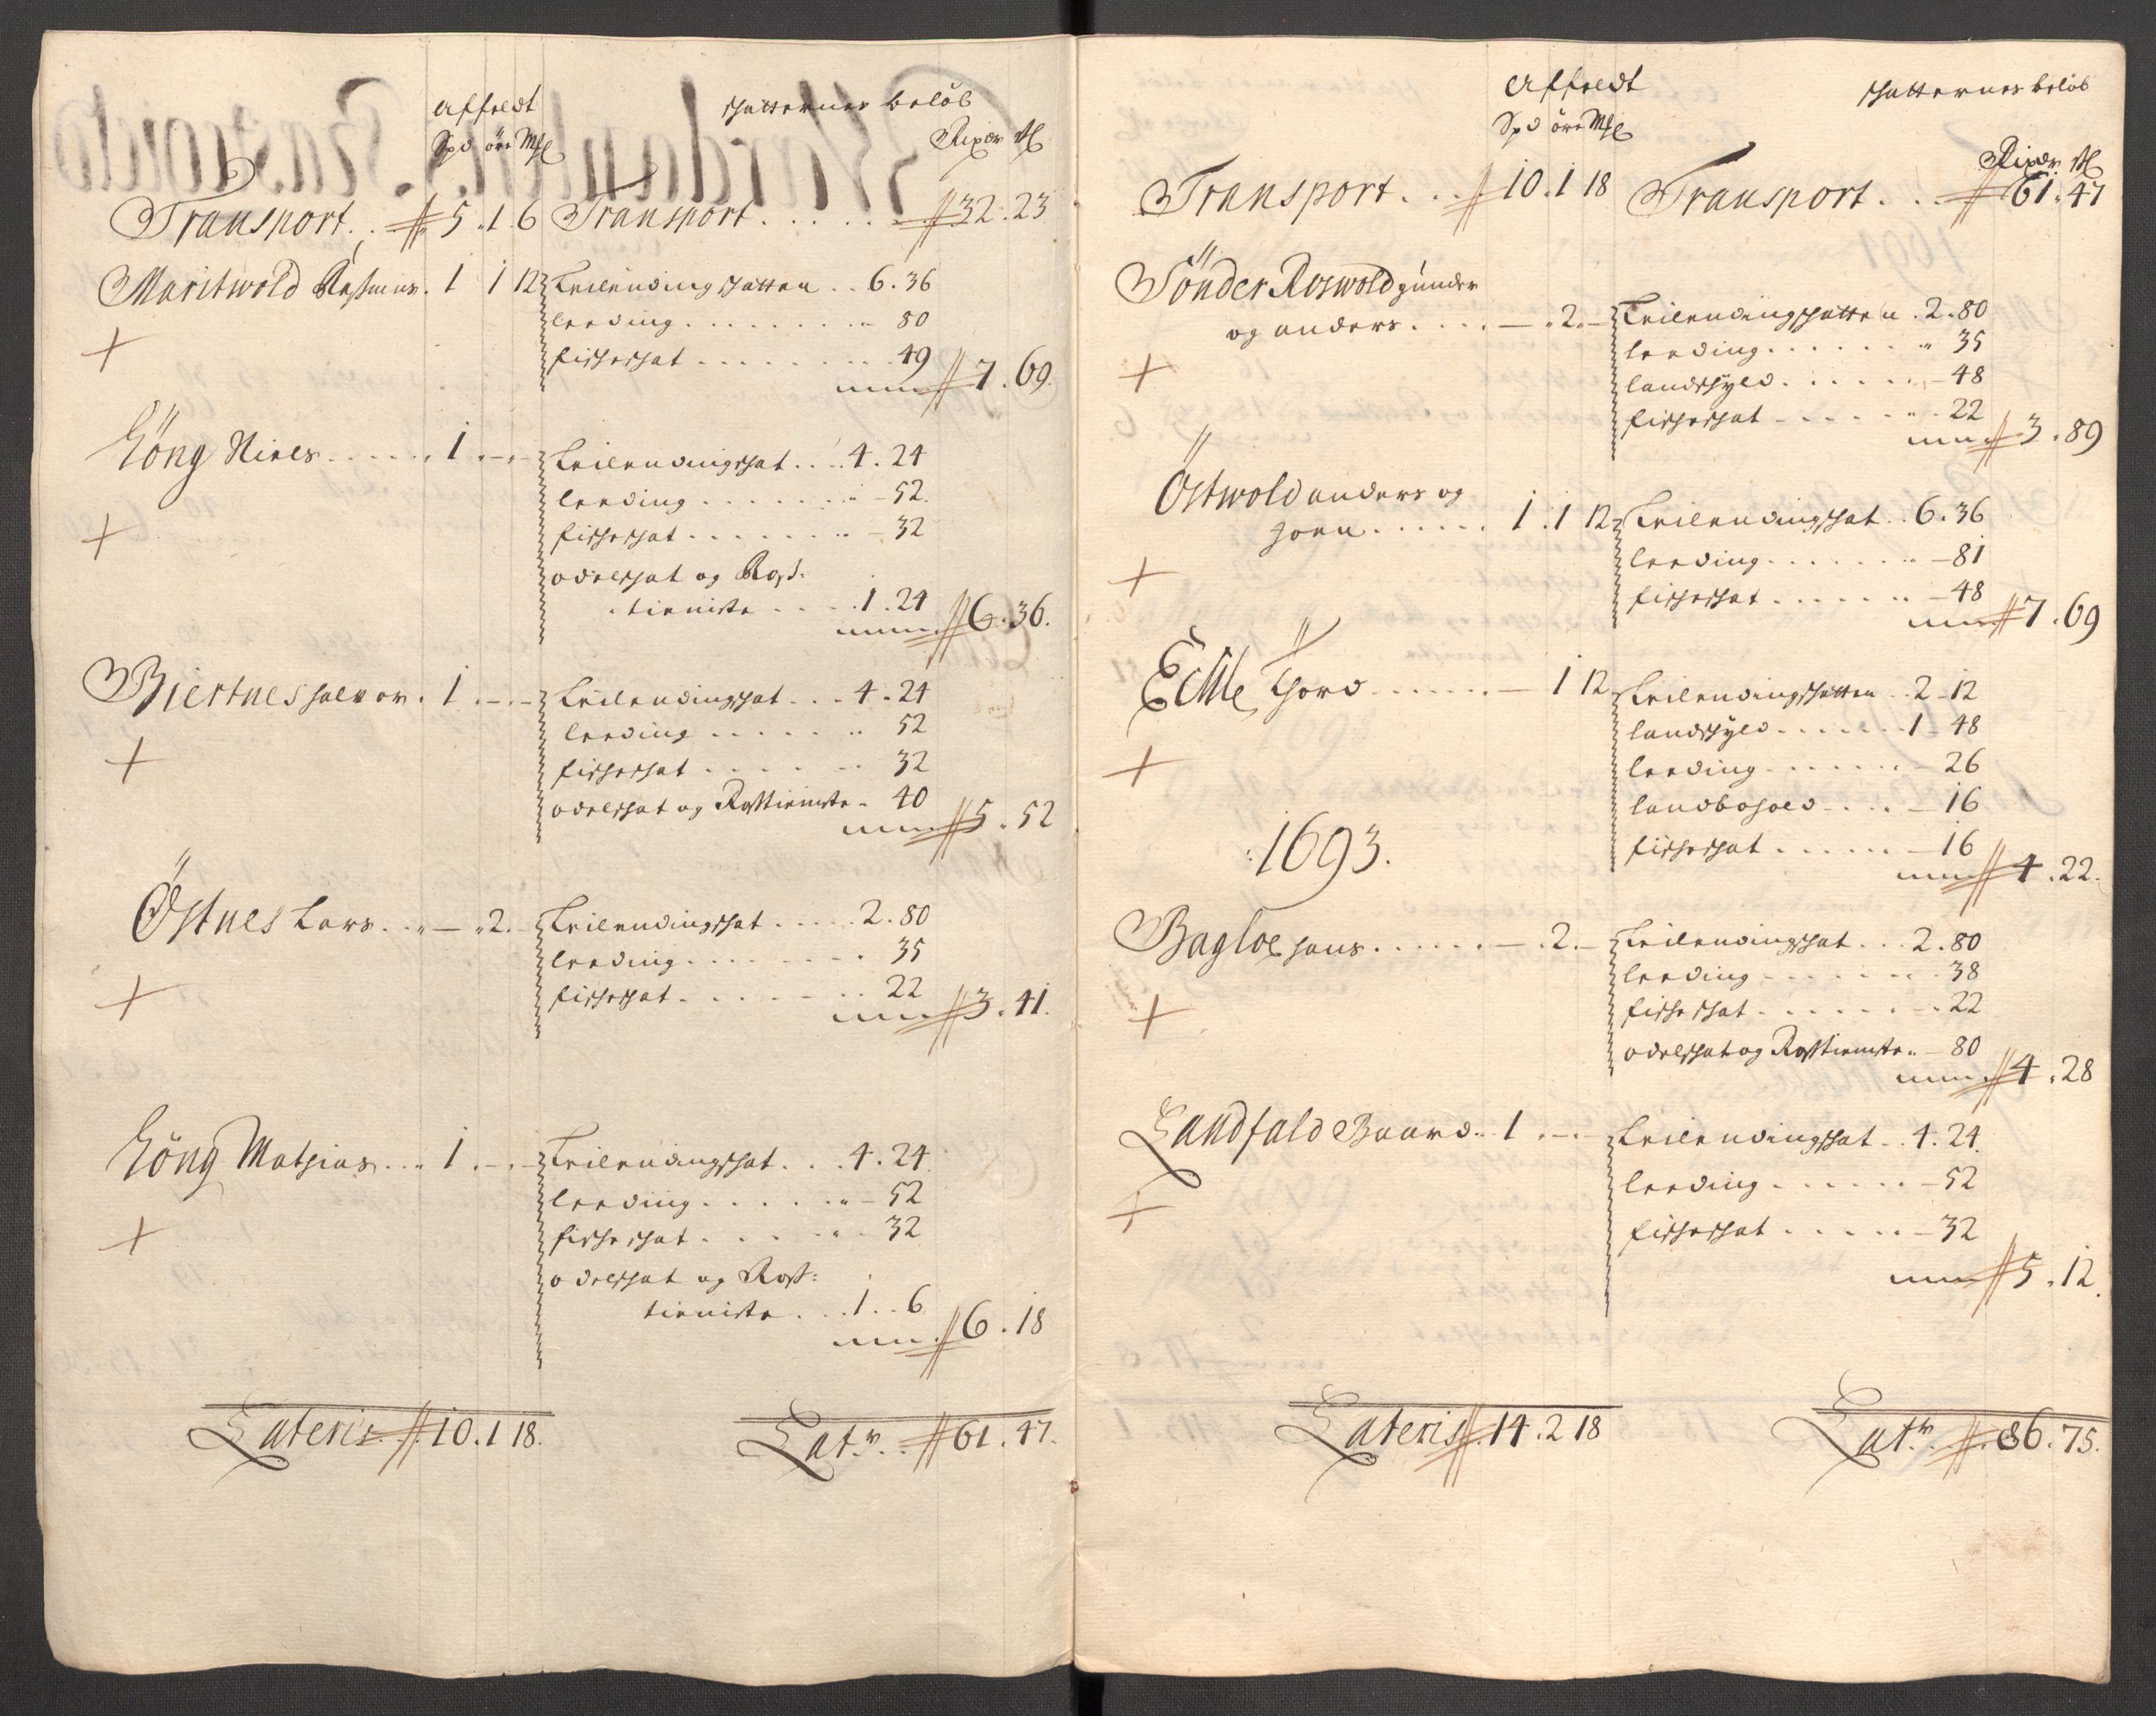 Affældt
Skatternes beløb
Spd øre Mk
Rixdr ß
Transport . . # 5 . 1 . 6 Transport . . . . . # 32 : 23
Maritwold Rasmus . 1 1 12 Leilendingskatten . . 6 . 36
leeding . . . . . . . . 80
fischeskat . . . . . . . . 49
# 7 . 69.
Göng Niels . . . . . . 1 . - . - Leilendingskat . . . . 4 . 24
leeding . . . . . . . - 52.
fischeskat . . . . . . . . - 32
odelskat og Ros:
tieniste . . . . 1 . 24
# 6 . 36.
Biertnes Halvor . 1 . - . - Leilendingskat . . . 4 . 24
leeding . . . . . . . 52
fischeskat . . . . . . . 32
odelskat og Rosstieniste - 40
# 5 . 52
Östnes Lars . . . - . 2 . - Leilendingskat . . . . . 2 . 80
leeding . . . . . . . . 35
fischeskat . . . . . . . . 22
# 3 . 41.
Göng Mathias . . . 1 . - . - Leilendingskat . . . 4 . 24
leeding . . . . . . . - 52
fischeskat . . . . . . . 32
odelskat og Ross:
tieniste . . . 1 . . 6
# 6 . 18
Lateris . # 10 . 1 18. Latr. . . # 61 . 47.
Affældt
Skatternes beløb
Spd øre Mk
Rixdr ß
Transport . . . # 10 . 1 18 Transport . . . # 61 . 47
Sönder Roswold gunder
og anders . . . . — . 2 . - Leilendingskatten . 2 . 80
leeding . . . . . . . 35
landskyld . . . . . . - 48
fischeskat . . . . . . . 22
# 3 . 89
Östwold anders og
Joen . . . . . . . 1 . 1 12 Leilendingskat . . 6 . 36
leeding . . . . . . . . - 81
fischeskat . . . . . . . - 48
# 7 . 69
Echle Tord . . . . . . . — 1 12 Leilendingskatten . . 2 - 12
landskyld . . . . . . . 1 - 48
leeding . . . . . . . - 26
landbohold . . . . - 16
fischeskat . . . . . . - 16
# 4 . 22.
: 1693.
Bagloe hans . . . . . . . — . 2 . - Leilendingskat . . . 2 . 80
leeding . . . . . . . . 38
fischeskat . . . . . . . - . 22
odelskat og Rosstieniste . - 80
# 4 . 28
Landfald Baard . . 1 . - . Leilendingskat . . 4 . 24.
leeding . . . . . . . - 52
fischeskat . . . . . . - 32
# 5 . 12.
Lateris # 14 . 2 18 Latr. . # . 86 . 75.